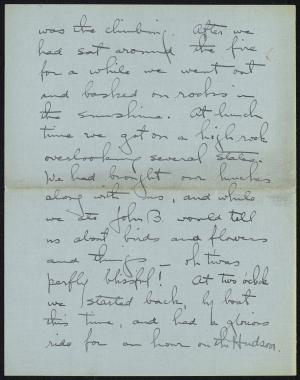 was the climbing. After we
had sat around the fire
for a while we went out
and basked on rocks in
the sunshine. At lunch
time we got on a high rock
overlooking several states.
We had brought our lunches
along with us, and while
we ate John B. would tell
us about birds and flowers
and things - oh 'twas
perfly blissful! At two o'clock
we started back, by boat
this time, and had a glorious
ride for an hour on the Hudson.